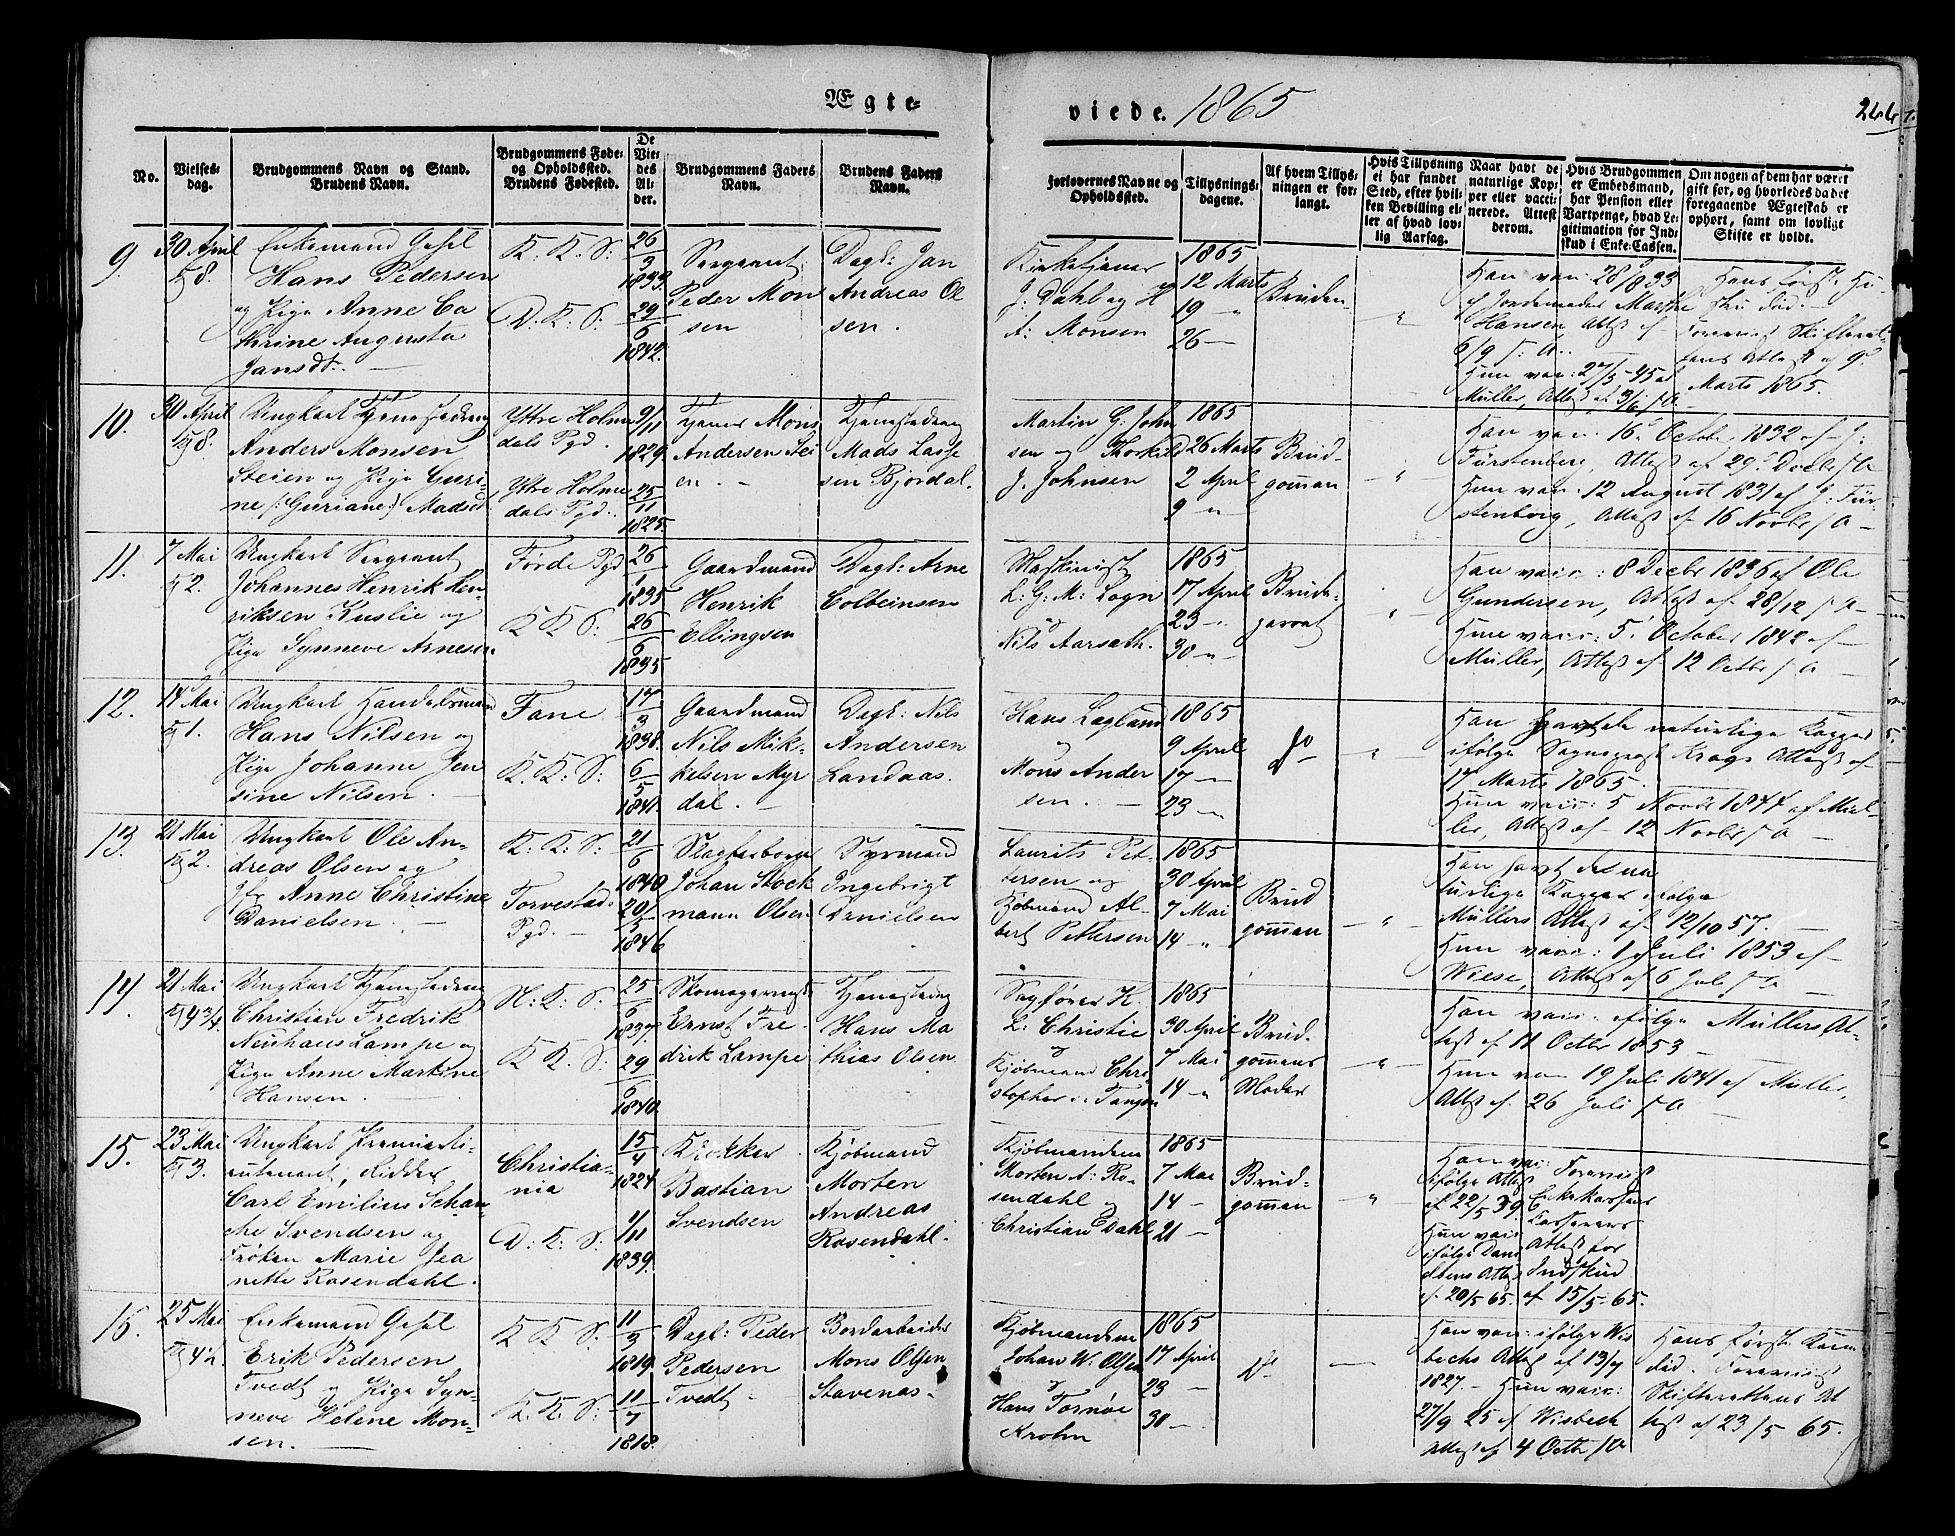 Ægte-
viede. 1865
266
No.
Vielses-
dag.
Brudgommens Navn og Stand.
Brudens Navn.
Brudgommens Føde-
og Opholdssted.
Brudens Fødested.
De
Vie-
des
Al-
der.
Brudgommens Faders
Navn.
Brudens Faders
Navn.
Forlovernes Navne og
Opholdssted.
Tillysnings-
dagene.
Af hvem Tillys-
ningen er for-
langt.
Hvis Tillysning
ei har fundet
Sted, efter hvil-
ken Bevilling el-
ler af hvad lov-
lig Aarsag.
Naar havt de
naturlige Kop-
per eller vacci-
nerede. Attest
derom.
Hvis Brudgommen
er Embedsmand,
har Pension eller
Vartpenge, hvad Le-
gitimation for Ind-
skud i Enke-Cassen.
Om nogen af dem har været
gift før, og hvorledes da det
foregaaende Ægteskab er
ophørt, samt om lovligt
Skifte er holdt.
9
30 April
8.
Enkemand Gesel
Hans Pedersen
og Pige Anne Ca
thrine Augusta
Jansdt:
K. K. S:
D: K: S:
26
3
1833
29
6
1842.
Sergeant
Peder Mon
sen
Dagl: Jan
Andreas Ol
sen.
Kirketjener
J: Dahl og H
A: Monsen
1865
12 Marts
19 "
26 —
Bruden
"
Han vac: 28/8 33
af Jordemoder Marthe
Hansen, Attest af
6/9 s: A:
Hun vac: 27/5 - 45 af
Müller, Attest af 3/6 s A
Hans første Hu-
stru død:
Foreviist Skifteret-
tens Attest af 9de
Marts 1865.
10.
30 April
8.
Ungkarl Tjenestedreng
Anders Monsen
Steien og Pige Guri-
ne (: Guriane:) Madsdt
Yttre Holme
dals Pgd.
Yttre Holme
dals Pgd.
9/11
1829.
25
11
1825.
Tjener Mons
Andersen Stei
en. —
Tjenestedreng
Mads Lasse
sen Bjordal.
Martin G: John
sen og Thorkild
J. Johnsen
1865
26 Marts
2 April
9 "
Brud-
gommen
"
Han vac: 16de October 1832 af J:
Fürstenberg, Attest af 29de Decbr s A
Hun vac: 12 August 1831 af J: Für
stenberg, Attest af 16 Novbr s A —
11.
7 Mai
2.
Ungkarl Sergeant
Johannes Henrik Hen-
riksen Kuslie og
Pige Synneve Arnesen
Førde Pgd
K K S:
26
1
1835
26
6
1835
Gaardmand
Henrik
Ellingsen
Dagl: Arne
Colbeinsen
Maskinist
L: G: M: Sogn
og
Nils Aarsath.
1865
17 April
23 "
30 "
Brude-
parret
"
Han vacc: 8 Decbr 1836 af Ole
Gundersen, Attest af 28/12 s A
Hun vacc: 5 October 1842 af
Müller, Attest af 12 Octbr s A
12.
14 Mai
1.
Ungkarl Handelsmand
Hans Nilsen og
Pige Johanne Jen
sine Nilsen. —
Fane
K. K: S:
17
3
1838.
6
5
1841.
Gaardmand
Nils Mik-
kelsen Myr
dal. —
Dagl: Nils
Andersen
Landaas.
Hans Lagland
og
Mons Ander
sen. —
1865
9 April
17 —
23 —
do
"
Han havt de naturlige Kopper
ifølge Sognepræst Krags Attest af
17 Marts 1865.
Hun vacc: 5 Novbr 1844 af Mül-
ler, Attest af 12 Novbr s A
13.
21 Mai
2.
Ungkarl Ole An-
dreas Olsen og
Jfr Anne Christine
Danielsen. —
K: K: S:
Torvestad-
Pgd. —
21
6
1840
20
5
1846
Slagterborger
Johan Stock
mann Olsen
Styrmand
Ingebrigt
Danielsen
Laurits Pet-
tersen og
Kjøbmand Al-
bert Pettersen
1865
30 April
7 Mai
14 "
Brud
gommen
"
Han havt de na
turlige Kopper ifølge
Müllers Attest af 12/10 57.
Hun vacc: 1 Juli 1853 af
Wiese, Attest af 6 Juli s A
14.
21 Mai
4 3/4
Ungkarl Tjenestedreng
Christian Fredrik
Neuhaus Lampe og
Pige Anne Martine
Hansen. —
N: K: S.
K K. S:
25
6
1837.
29
6
1840.
Skomagermest:
Ernst Fre-
drik Lampe
Tjenestedreng
Hans Ma
thias Olsen.
Sagfører H.
L. Christie
og
Kjøbmand Chri
stopher
1865
30 April
7 Mai
14 "
Brud-
gommens
Moder
"
Han vacc: ifølge Müllers At-
test af 11 Octbr 1853
Hun vac 19 Juli 1841 af Müller,
Attest af 26 Juli s A
15.
23 Mai
3.
Ungkarl Premierli-
eutenant, Ridder
Carl Emilius Schan-
che Svendsen og
Frøken Marie Jea
nette Rosendahl.
Christia-
nia
D: K: S:
15
4
1824
1/11
1839.
Klokker
Bastian
Svendsen
Kjøbmand
Morten
Andreas
Rosendahl.
Kjøbmændene
Morten A: Ro-
sendahl og
Christian Dahl
1865
7 Mai
14 —
21 —
Brud-
gommen
"
Han vac:
ifølge Attest
af 22/5 39
Hun vac:
ifølge Dani
elsens Attest
af 20/5 65.
Foreviist
Enkekassens
Kasserers
Attest for
Indskud
af 15/5 - 65.
16.
25 Mai
4 1/2
Enkemand Gesel
Erik Pedersen
Tvedt og Pige Syn-
neve Helene Mon-
sen. —
K K S.
K. K: S:
11
3
1819.
11
7
1818.
Dagl: Peder
Pedersen
Tvedt —
Bordarbeider
Mons Olsen
Stavenas.
Kjøbmændene
Johan W. Olsen
og
Hans Tornøe
Krohn
1865
17 April
23 —
30 —
do
—
Han vac: ifølge Wis
bechs Attest af 13/7
1827. — Hun vac:
27/9 25 af Wisbech
Attest af 4 Octbr s A
Hans første Kone
død. Foreviist
Skifterettens At
test af 23/5 65.